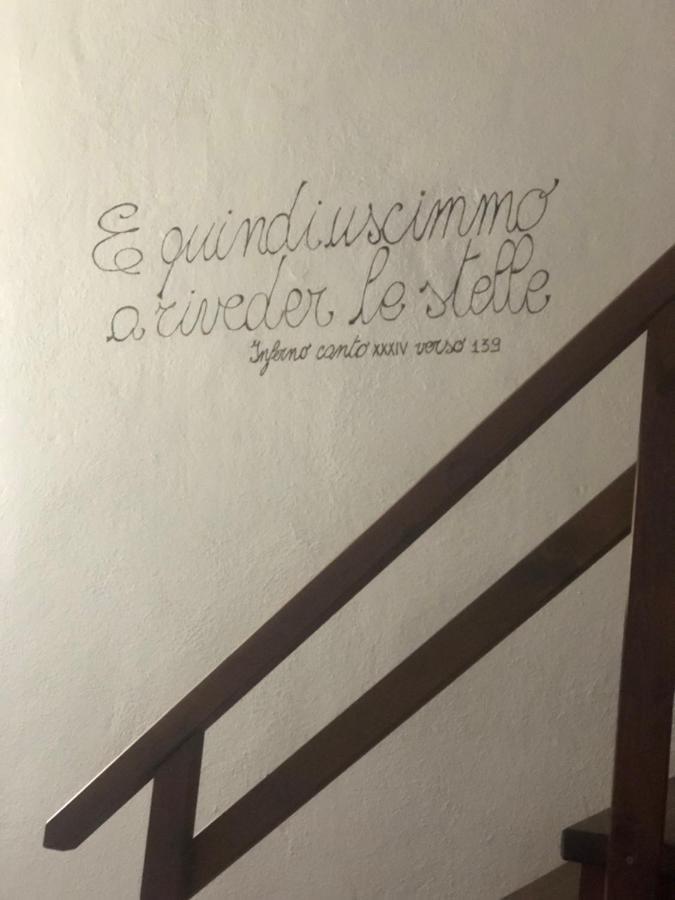 E quindi uscimmo
a riveder le stelle
Inferno canto XXXIV verso 139